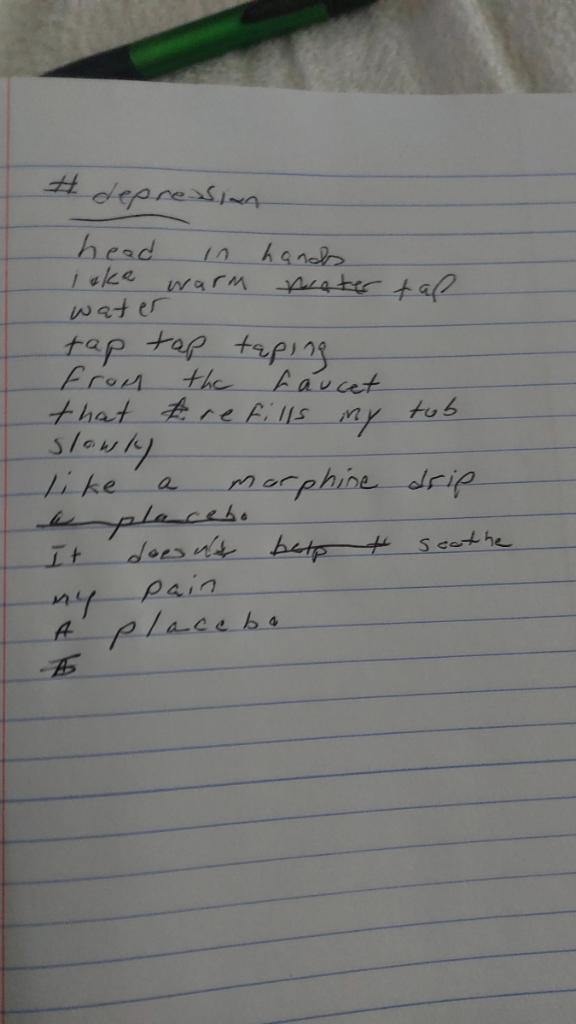 # depression
head in hands
luke warm water tap
water
tap tap taping
from the faucet
that refills my tub
slowly
like a morphine drip
a placebo
It doesn't help soothe
my pain
A placebo